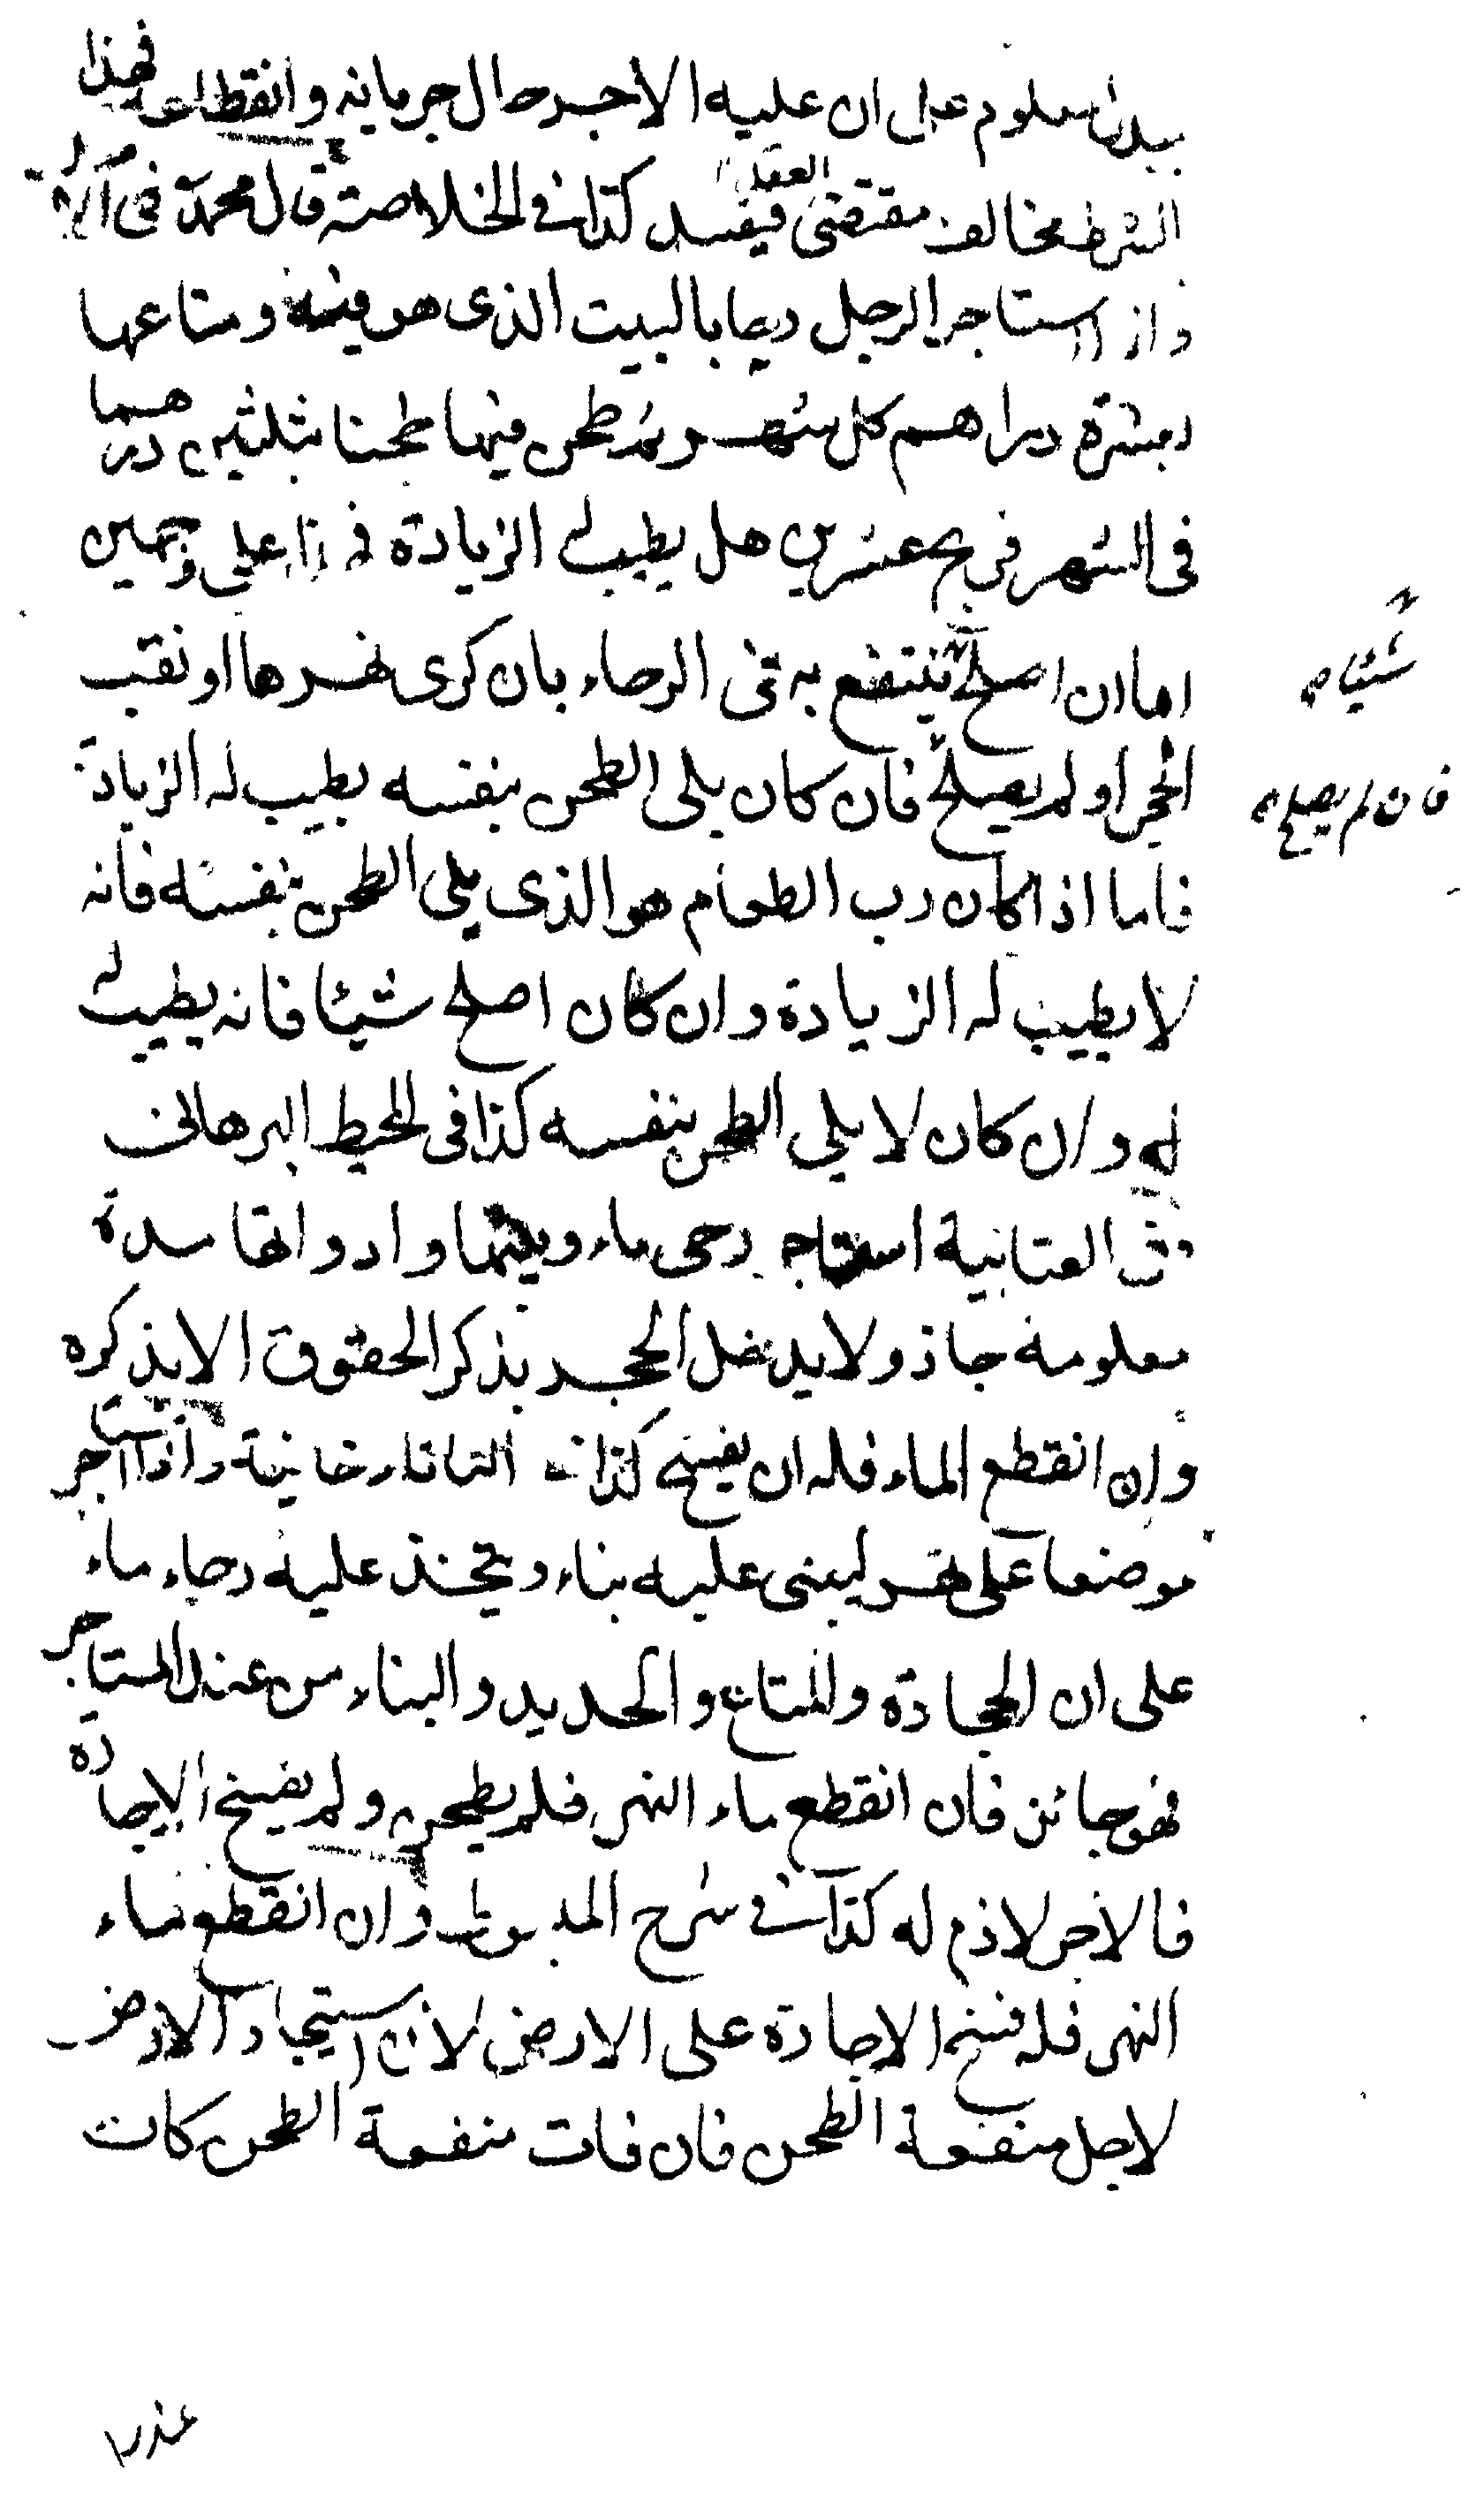 ببدل معلوم على ان عليه الاجر حال جريانه وانقطاعه فهذا
الشرط مخالف مقتضى العقد فيفسد كذا في الخلاصة قال محمد في
واذا استاجر الرجل رحا بالبيت الذى هو فيه ومتاعها
بعشرة دراهم كل شهر فطحن فيها طحنا بثلثين درهما
فى الشهر فربح عشرين هل يطيب له الزيادة فهذا على وجهين
اما ان اصلح شيئا ينتفع به فى الرحاء بان كرى نهرها او نقب
الحجر او لم يصلح فان لم يصلح فان كان يلى الطحن بنفسه يطيب له الزيادة
فاما اذا كان رب الطعام هو الذى يلى الطحن بنفسه فانه
لا يطيب له الزيادة وان كان اصلح شيئا فانه يطيب
له وان كان لا يلى الطحن بنفسه كذا فى المحيط البرهانى
وفى العتابية استاجر رحى ماء وبيتها وادواتها مدة
معلومة جاز ولا يدخل الحجر بذكر الحقوق الا بذكره
وان انقطع الماء فله ان يفسخ كذا فى التاتارخانية واذا استاجر
موضعا على نهر ليبنى عليه بناء ويتخذ عليه رحاء ماء
على ان الحجارة والمتاع والحديد والبناء من عند المستاجر
فهو جائز فان انقطع ماء النهر فلم يطحن ولم يفسخ الاجارة
فالاجر لازم له كذا فى شرح المبسوط وان انقطع ماء
النهر فله فسخ الاجارة على الارض لان استيجار الارض
لاجل منفعة الطحن فان فات منفعة الطحن كان
عذرا